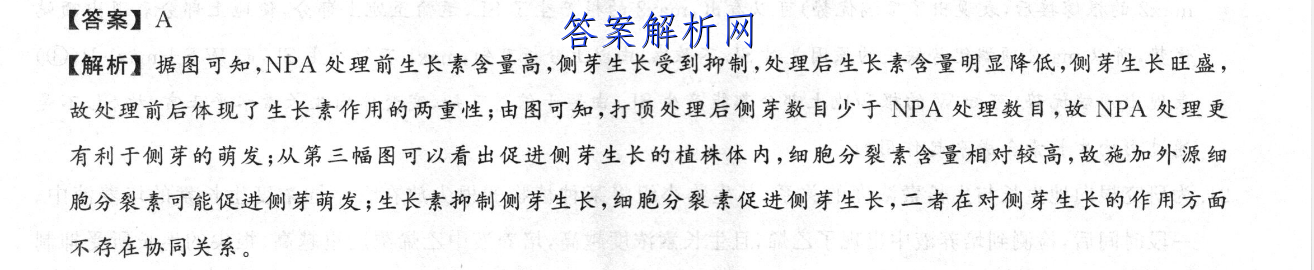 【答案】A
答案解析网
【解析】据图可知,NPA 处理前生长素含量高,侧芽生长受到抑制,处理后生长素含量明显降低,侧芽生长旺盛,
故处理前后体现了生长素作用的两重性;由图可知,打顶处理后侧芽数目少于 NPA 处理数目,故 NPA 处理更
有利于侧芽的萌发;从第三幅图可以看出促进侧芽生长的植株体内,细胞分裂素含量相对较高,故施加外源细
胞分裂素可能促进侧芽萌发;生长素抑制侧芽生长,细胞分裂素促进侧芽生长,二者在对侧芽生长的作用方面
不存在协同关系。